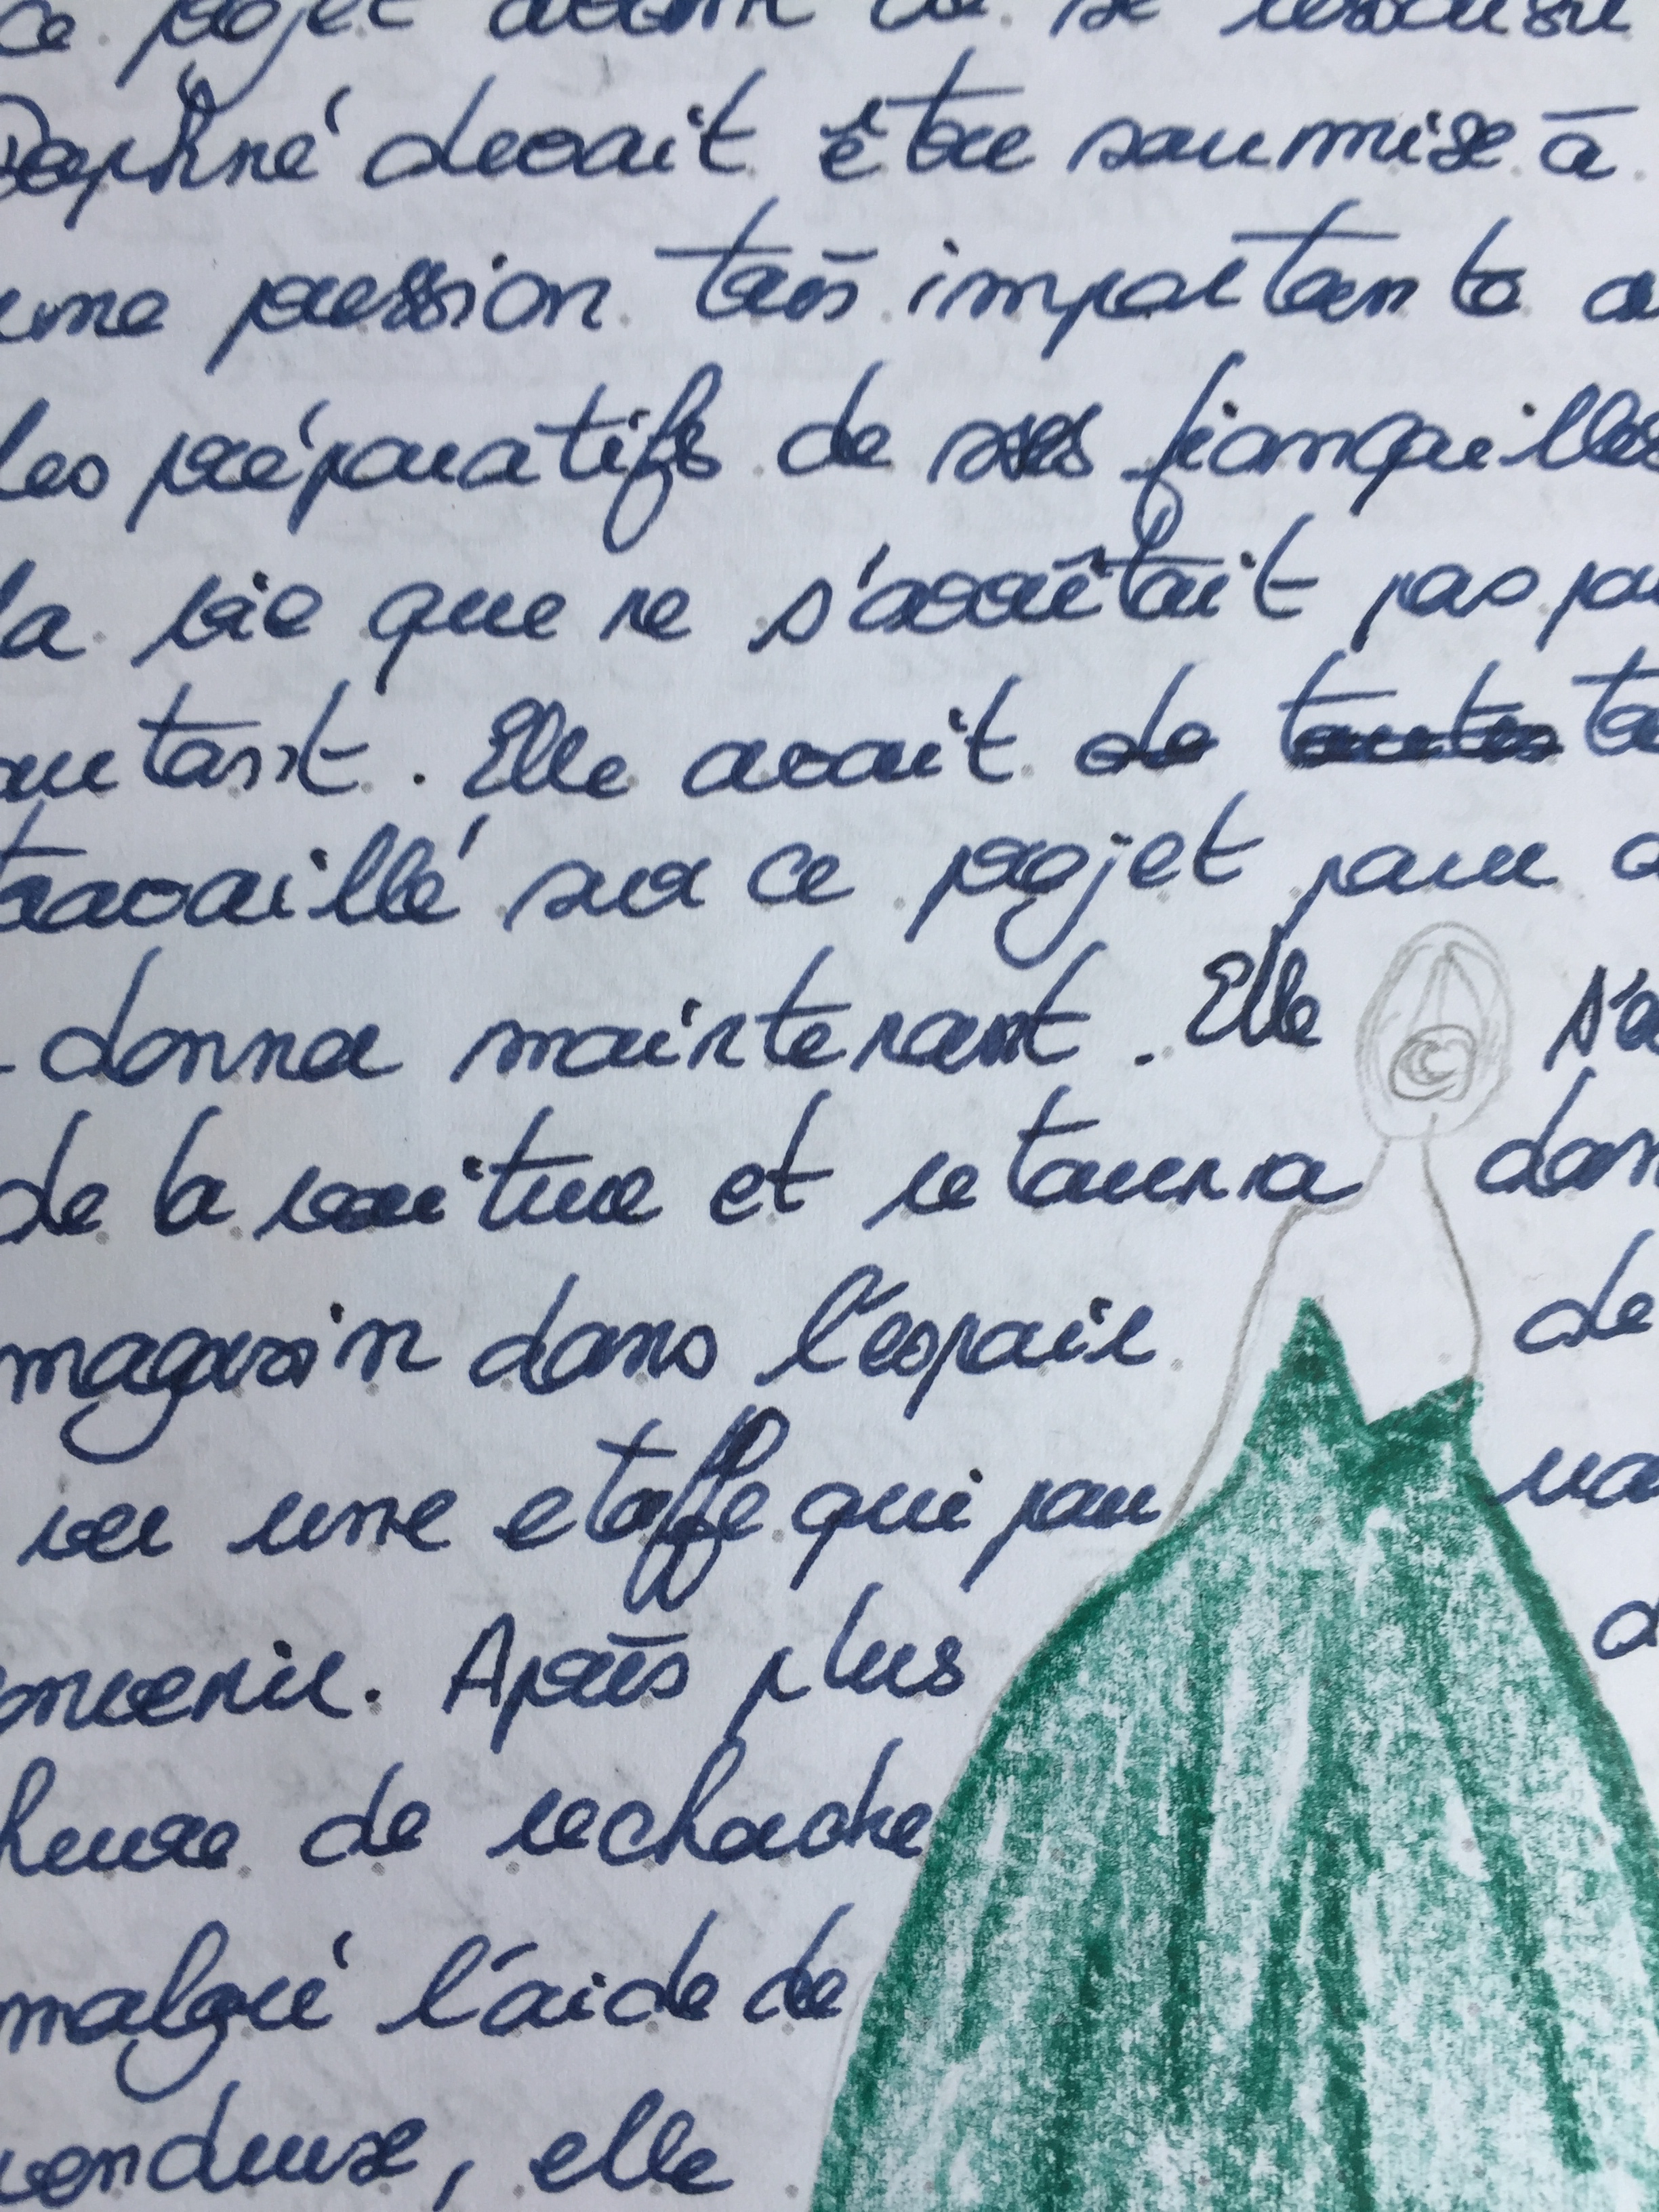 ce projet allait se
Daphné devait être soumise à
une pression très importante
les préparatifs de ses fiançailles
la vie que ne s'arrêtait pas
autant. Elle avait de toutes
travaillé sur ce projet pour
donner maintenant. Elle
de la voiture et retourna
magasin dans l'espoir de
ver une etoffe qui pou
onvenir. Après plus d
heure de recherche
malgré l'aide de
vendeuse, elle